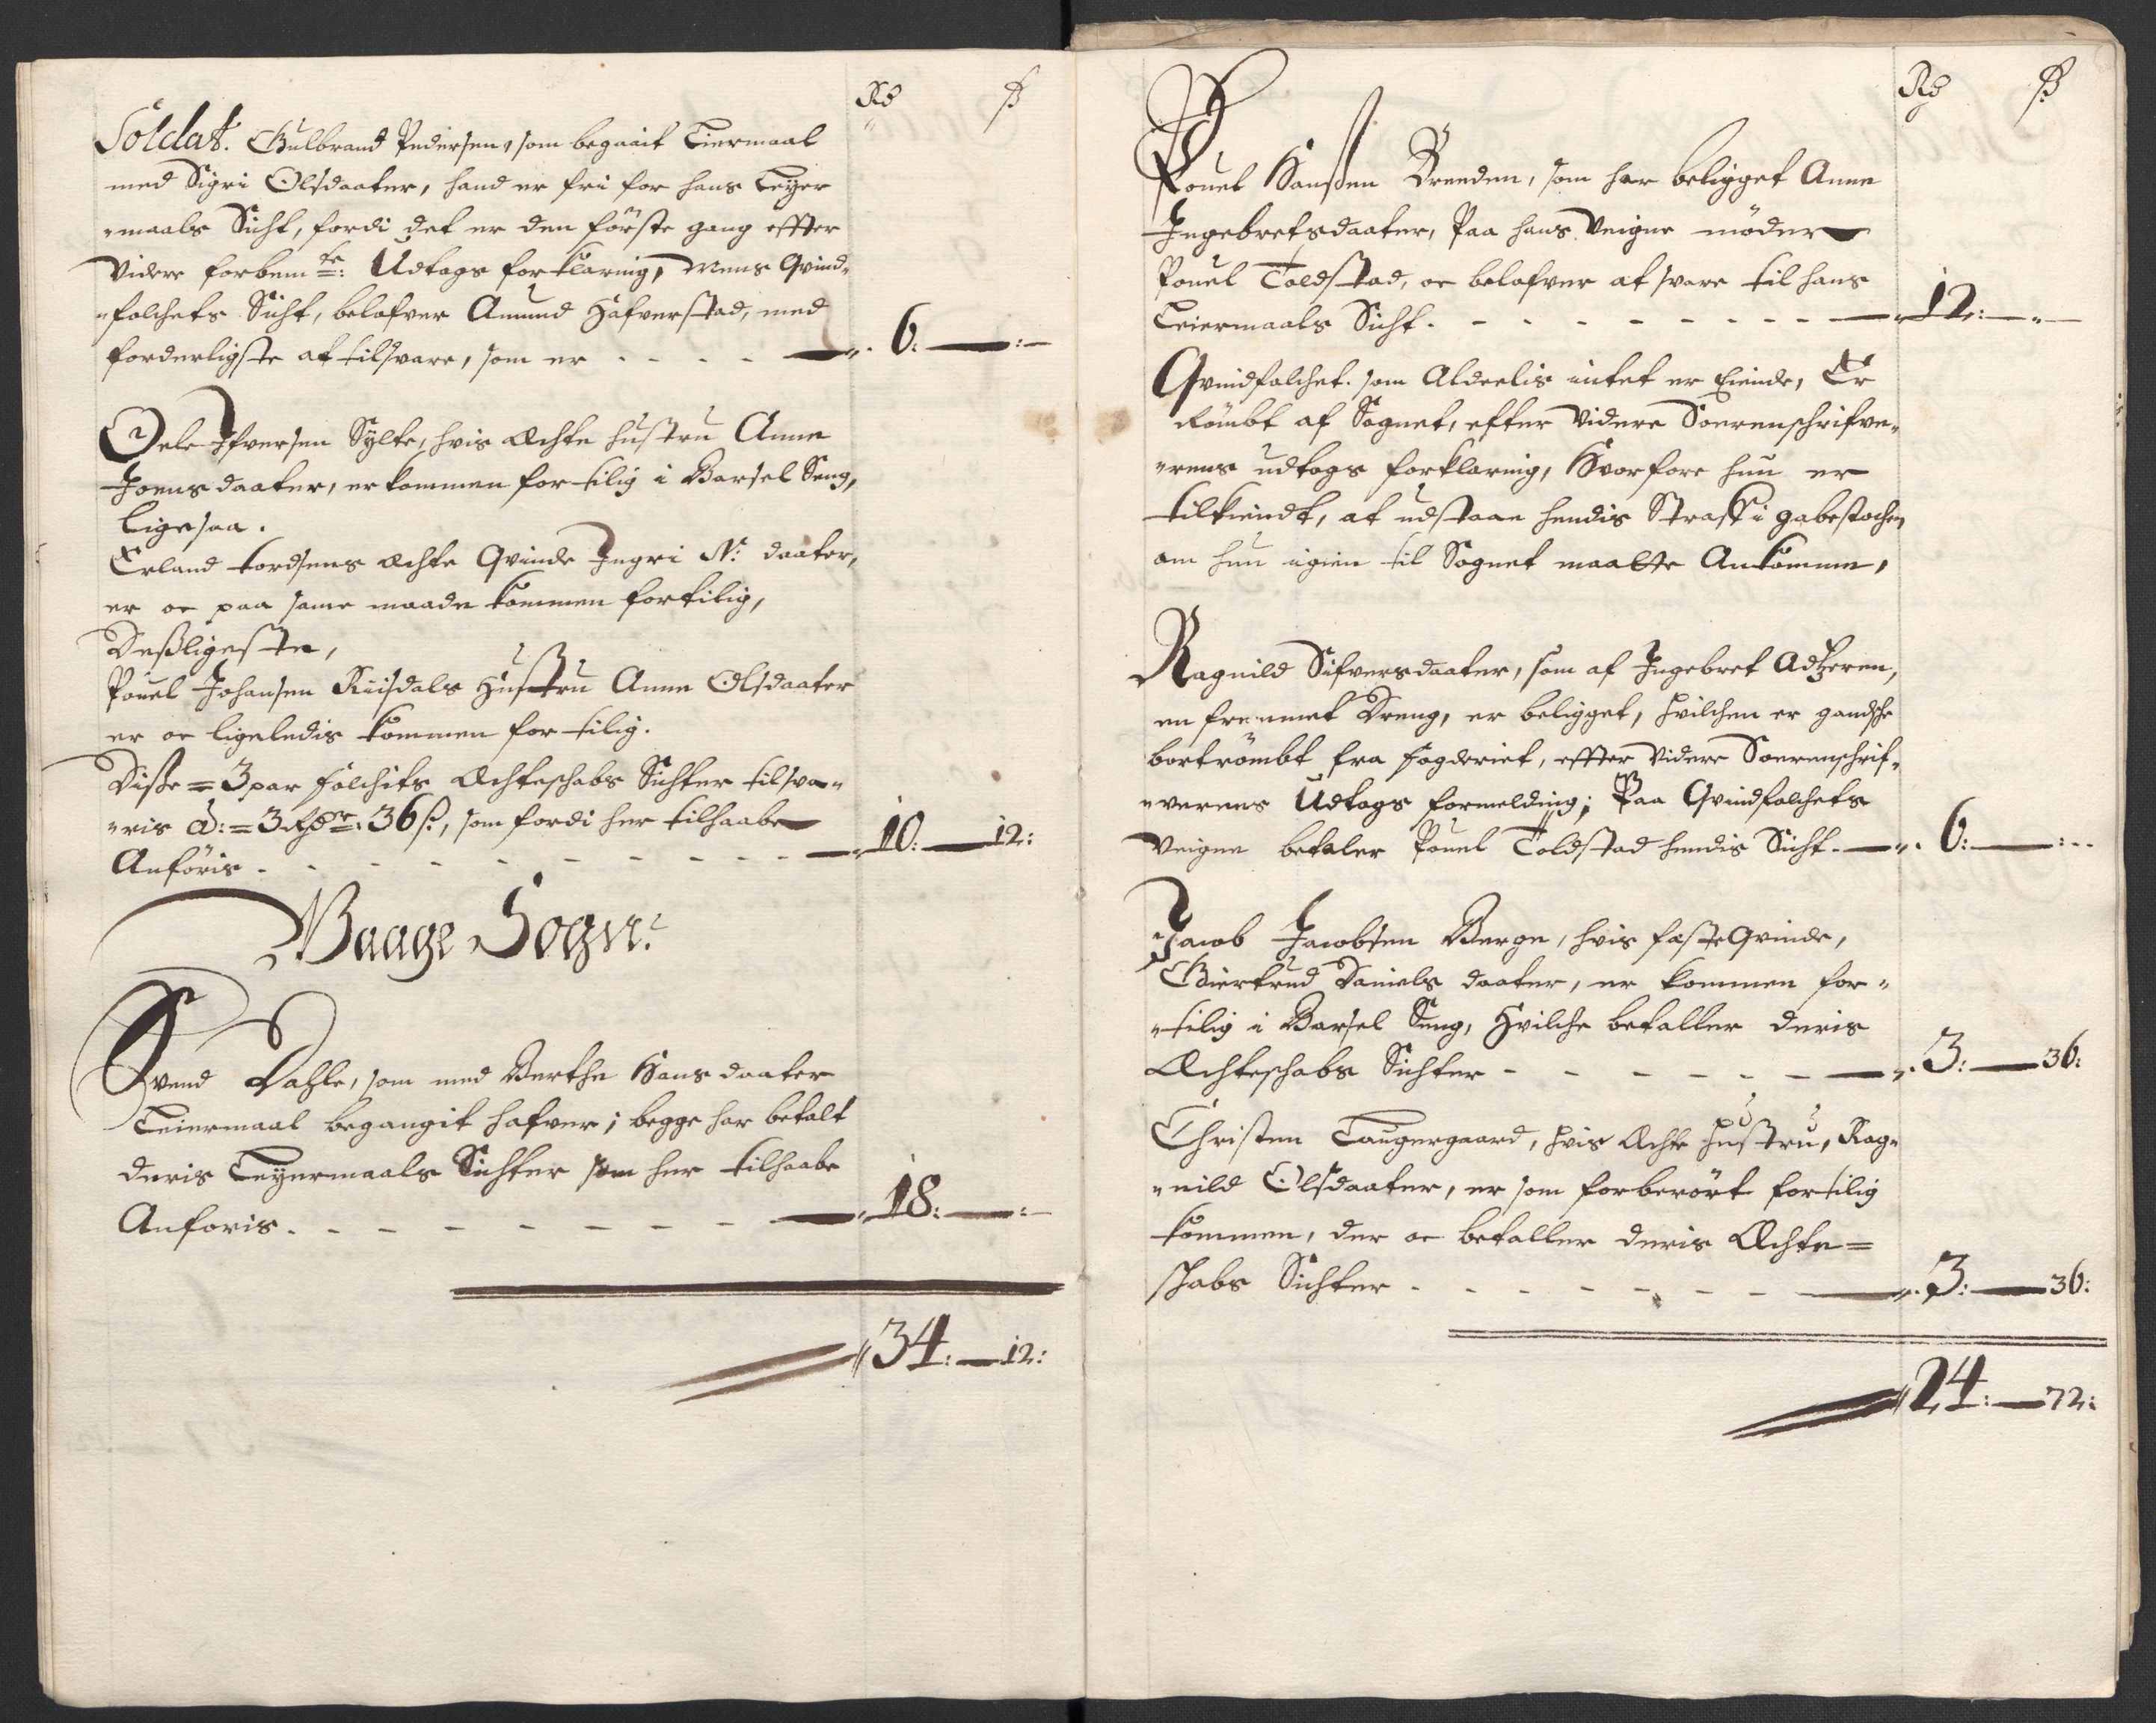 Rd ß
Soldat. Gulbrand Pedersen, som begaait Leiermaal
med Sigri Olsdaater, hand er fri for hans Leyer
"maals Sicht, fordi det er den förste gang effter
videre forbem.te: Udtogs forklaring, mens Qvind-
"folchets Sicht, belofver Amund Hafverstad, med
forderligste at tilsvare, som er - - - - 6:
Oele Ifversen Sylte, hvis Echte hustru Anne
Joensdaater, er kommen for tilig i Barsel Seng,
ligesaa.
Erland tordsens Echte Qvinde Ingri N: daater,
er oc paa same maade kommen fortilig,
Desligeste,
Pouel Johansen Riisdals Hustru Anne Olsdaater
er oc ligeledis kommen for tilig.
Disse = 3 par folchits Echteschabs Sichter tilsva-
"ris à: = 3 Rdr: 36 ß:, som fordi her tilhaabe
Anföris - - - - - - - 10: 12:
Vaage Sogn:
Svend Dahle, som med Berthe Hansdaater
Leiermaal begangit hafver; begge har betalt
deris Leyermaals Sichter som her tilhaabe
Anföris - - - - - - - 18:
34: 12:
Rd ß
Pouel Hanssen Breeden, som har beligget Anne
Ingebretsdaater, Paa hans Veigne möder
Pouel Toldstad, oc belofver at svare til hans
Leiermaals Sicht. - - - - - - - 12:
Qvindfolchet. som Aldeelis intet er Eiende, Er
Römbt af Sognet, efter videre Sorenschrifve-
"rens udtogs forklaring, Hvorfore hun er
tilkiendt, at udstaae hendis Straff i gabestochen
om hun igien til Sognet maatte Ankomme,
Ragnild Sifversdaater, som af Ingebret
en fremmet Dreng, er beligget, hvilchen er gandsche
bortrömbt fra fogderiet, effter videre Sorenschrif-
"verens Udtogs formelding; Paa Qvindfolchets
Veigne betaler Pouel Toldstad hendis Sicht. 6:
Jacob Jacobsen Berge, hvis fæste Qvinde,
Giertrud Daniels daater, er kommen for-
"tilig i Barsel Seng, Hvilche betaller deris
Echteschabs Sichter - - - - - - 3: 36:
Christen Laugergaard, hvis Echte hustru, Rag-
"nild Olsdaater, er som forberört fortilig
kommen, der oc betaller deris Echte=
schabs Sichter - - - - - - 3: 36:
24: 72: